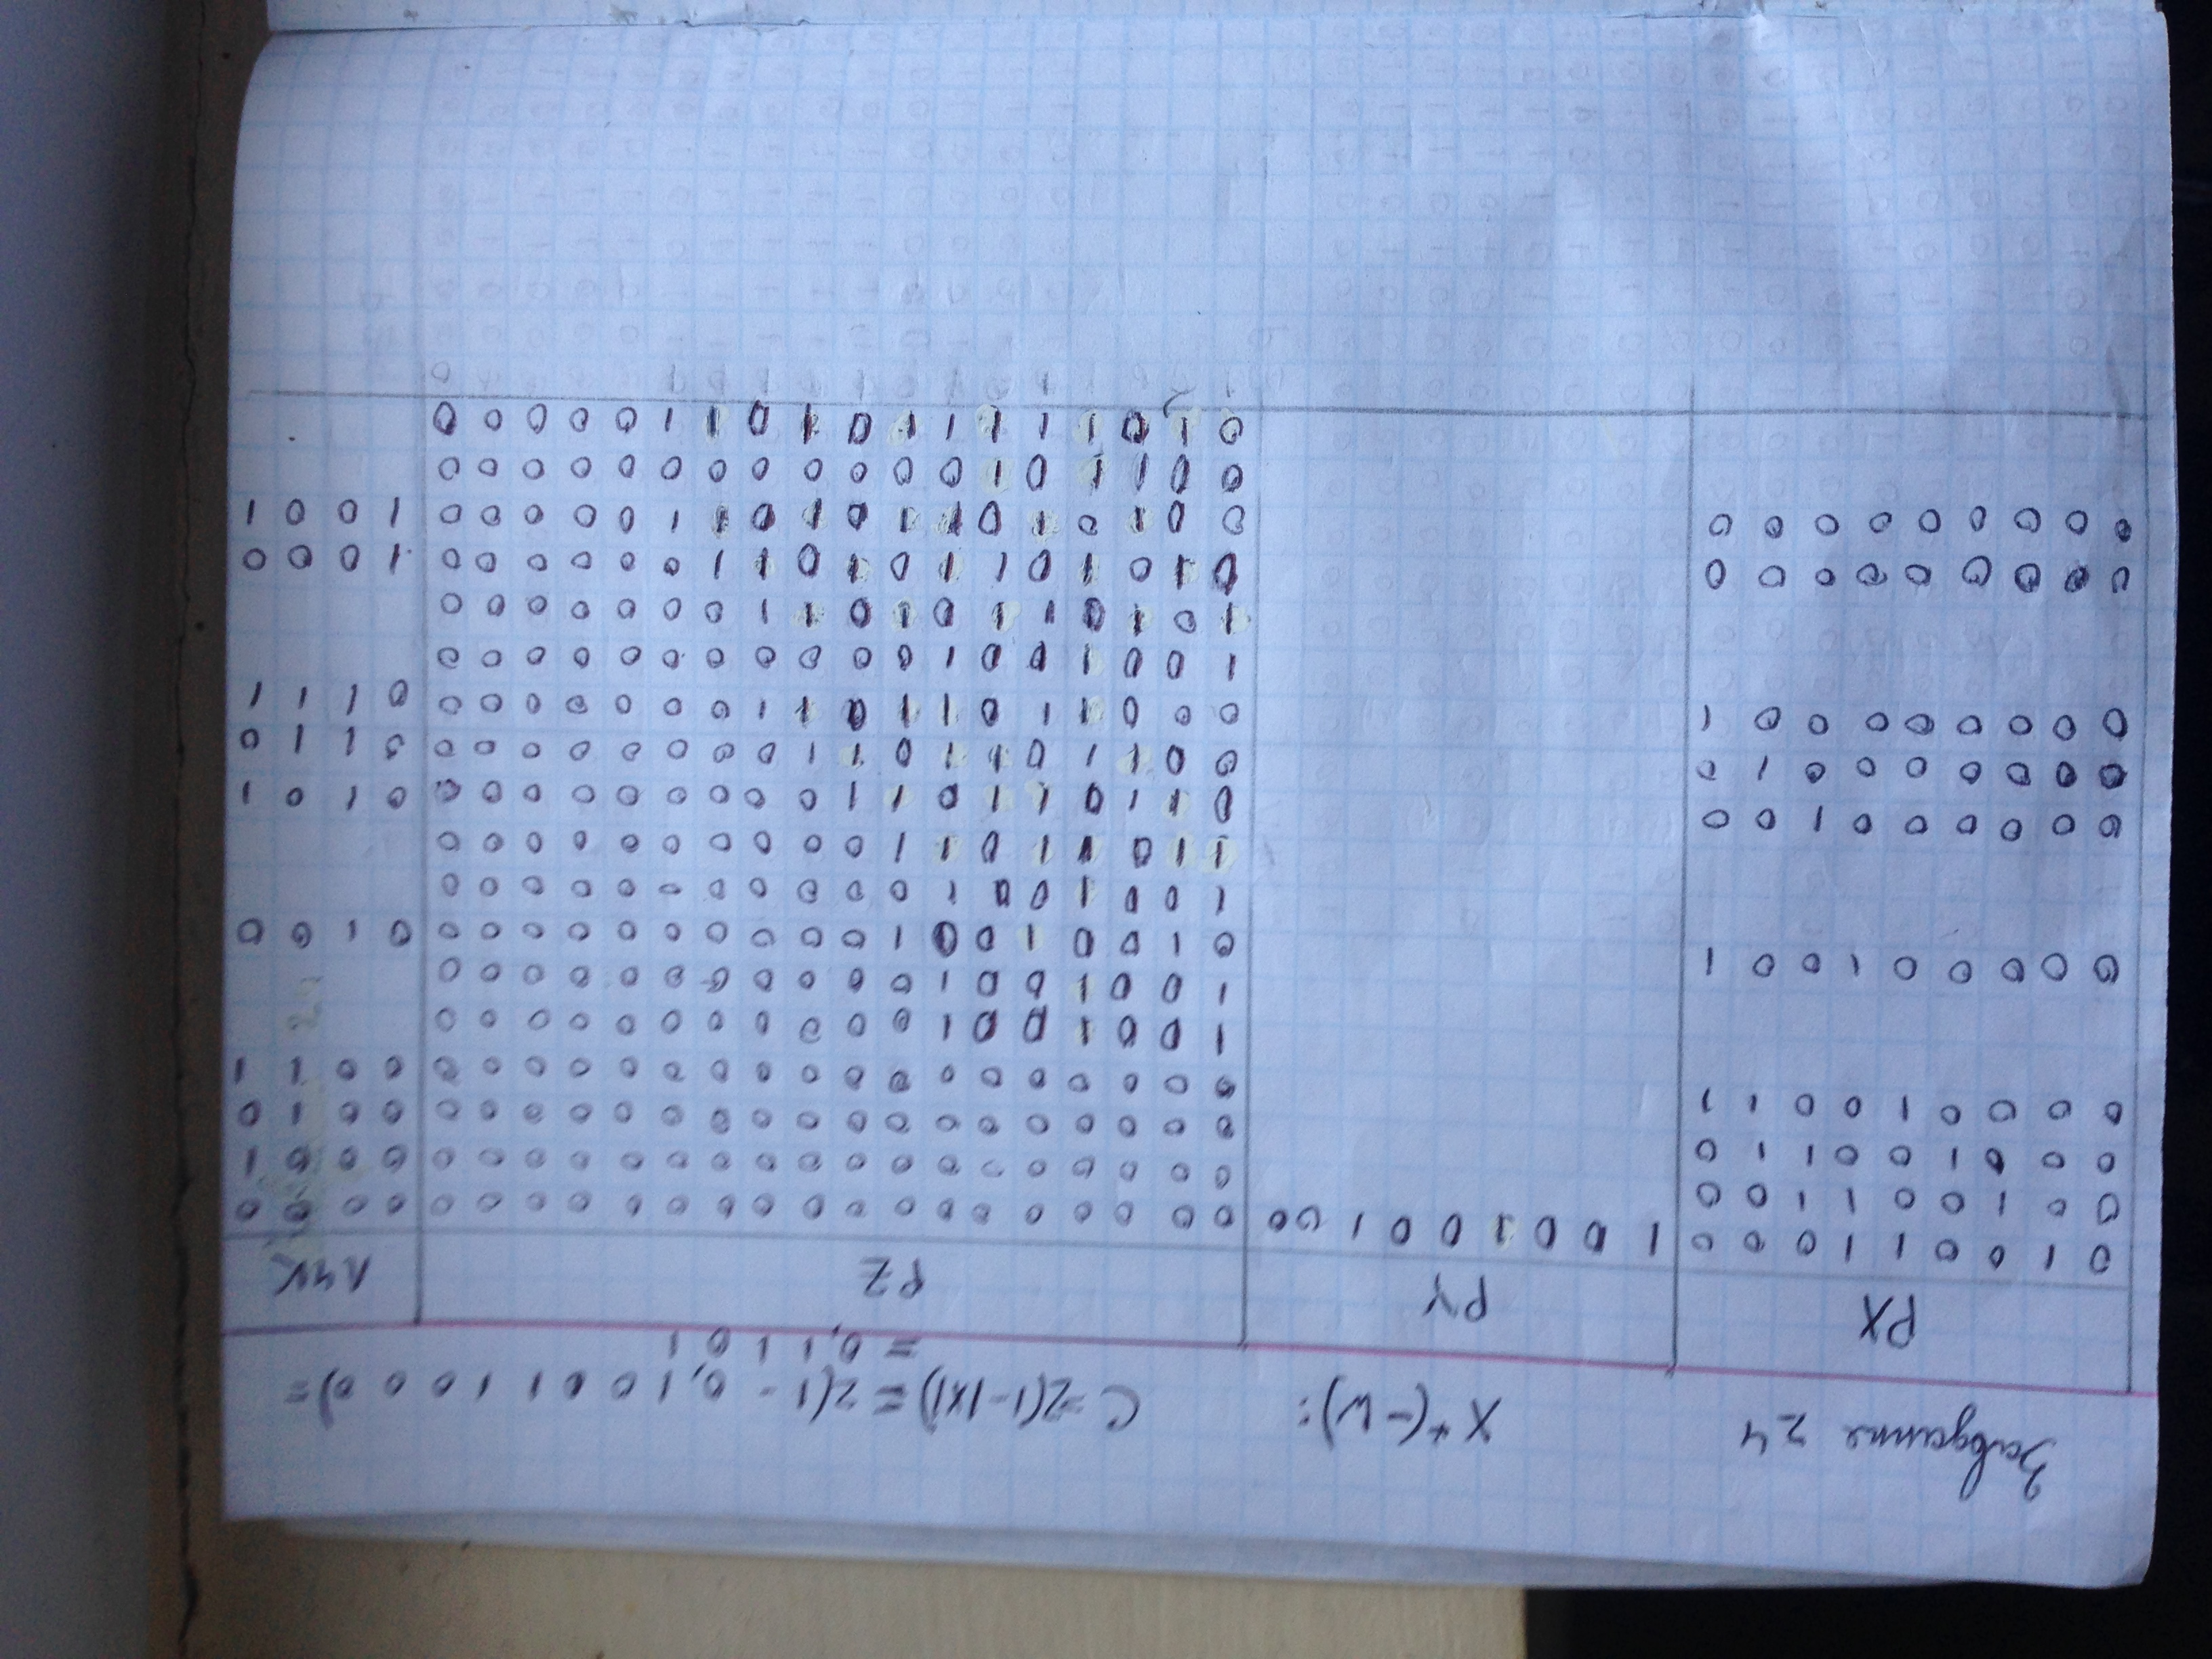 Завдання 24 X*(-W): C=2(1-|X|)=2(1-0,10011000)=
=0,1101
PX PY PZ ЛЧК
0 1 0 0 1 1 0 0 0 1 0 0 1 0 0 1 0 0 0 0 0 0 0 0 0 0 0 0 0 0 0 0 0 0 0 0 0 0 0 0
0 0 1 0 0 1 1 0 0 0 0 0 0 0 0 0 0 0 0 0 0 0 0 0 0 0 0 0 0 0 1
0 0 0 1 0 0 1 1 0 0 0 0 0 0 0 0 0 0 0 0 0 0 0 0 0 0 0 0 0 1 0
0 0 0 0 1 0 0 1 1 0 0 0 0 0 0 0 0 0 0 0 0 0 0 0 0 0 0 0 0 1 1
1 0 0 1 0 0 1 0 0 0 0 0 0 0 0 0 0 0
1 0 0 1 0 0 1 0 0 0 0 0 0 0 0 0 0 0
0 0 0 0 0 1 0 0 1 0 1 0 0 1 0 0 1 0 0 0 0 0 0 0 0 0 0 0 1 0 0
1 0 0 1 0 0 1 0 0 0 0 0 0 0 0 0 0 0
1 1 0 1 1 0 1 1 0 0 0 0 0 0 0 0 0 0
0 0 0 0 0 0 1 0 0 0 1 1 0 1 1 0 1 1 0 0 0 0 0 0 0 0 0 0 1 0 1
0 0 0 0 0 0 0 1 0 0 0 1 1 0 1 1 0 1 1 0 0 0 0 0 0 0 0 0 1 1 0
0 0 0 0 0 0 0 0 1 0 0 0 1 1 0 1 1 0 1 1 0 0 0 0 0 0 0 0 1 1 1
1 0 0 1 0 0 1 0 0 0 0 0 0 0 0 0 0 0
1 0 1 0 1 1 0 1 0 1 1 0 0 0 0 0 0 0
0 0 0 0 0 0 0 0 0 0 1 0 1 0 1 1 0 1 0 1 1 0 0 0 0 0 0 1 0 0 0
0 0 0 0 0 0 0 0 0 0 0 1 0 1 0 1 1 0 1 0 1 1 0 0 0 0 0 1 0 0 1
0 0 1 1 0 1 0 0 0 0 0 0 0 0 0 0 0 0
0 1 0 1 1 1 1 1 0 1 0 1 1 0 0 0 0 0